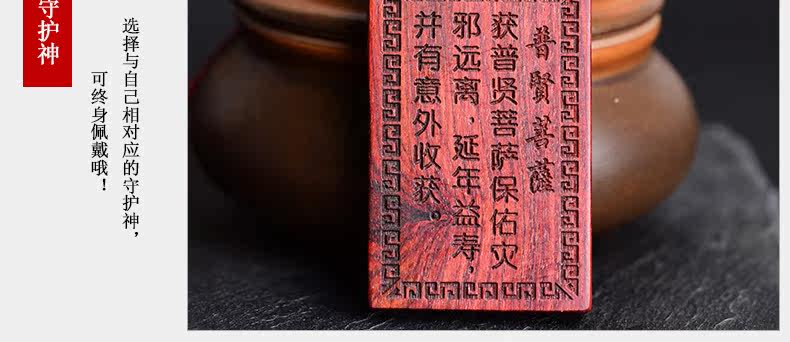 守护神
选择与自己相对应的守护神，
可终身佩戴哦！
普贤菩薩
获普贤菩萨保佑灾
邪远离，延年益寿，
并有意外收获。